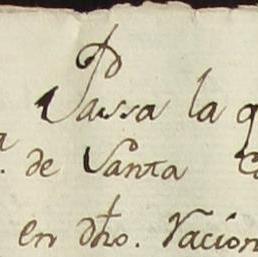 Passa la q
a. de Santa C
en dho. Nacion